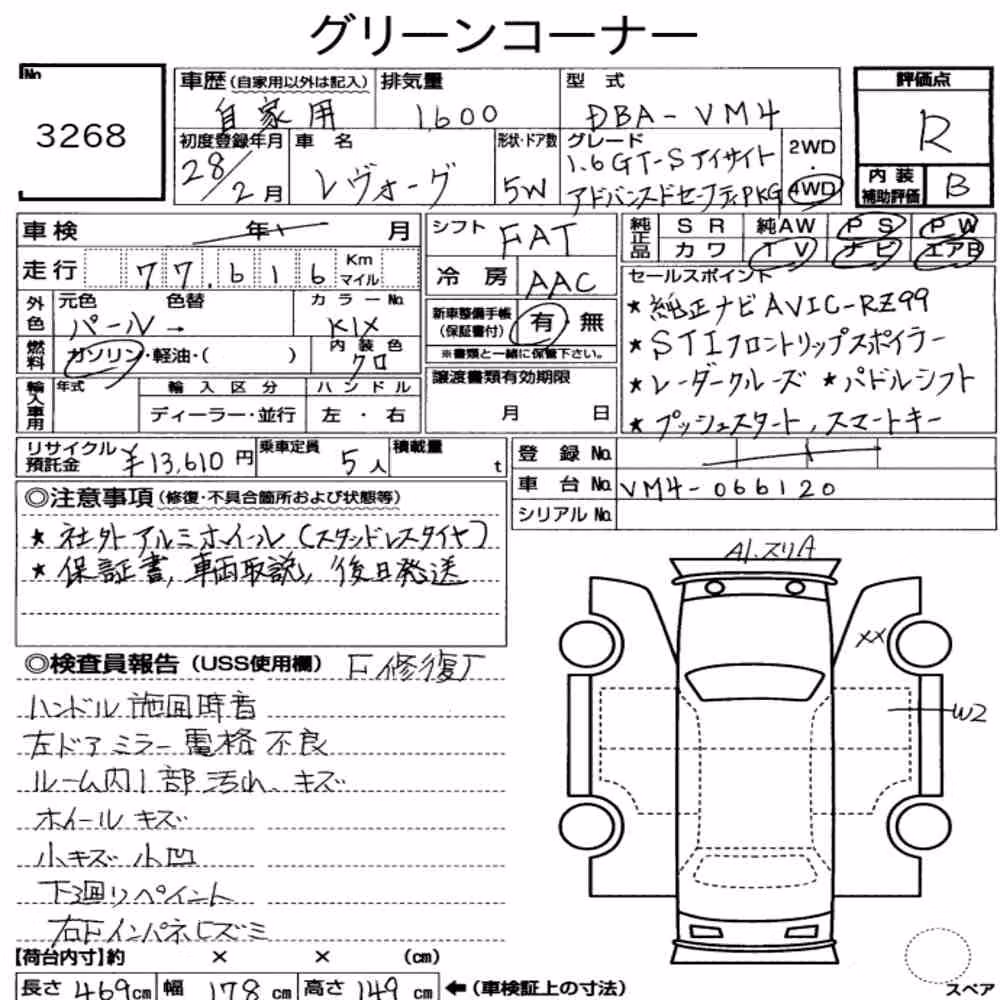 グリーンコーナー
No.
3268
車歴(自家用以外は記入) 排気量 型式 評価点
自家用 1,600 DBA-VM4 R
初度登録年月 車名 形状・ドア数 グレード 2WD・4WD
28/2月 レヴォーグ 5W 1.6GT-Sアイサイト
アドバンスドセーフティPKG
内装補助評価 B
車検 年 月 シフト FAT
純正品 SR 純AW PS PW
カワ TV ナビ エアB
走行 77,616 Km マイル 冷房 AAC
セールスポイント
★純正ナビAVIC-RZ99
★STIフロントリップスポイラー
★レーダークルーズ ★パドルシフト
★プッシュスタート,スマートキー
外色 元色 色替 カラーNo.
パール→ K1X
新車整備手帳(保証書付) 有・無
※書類と一緒に保管下さい。
燃料 ガソリン・軽油・( ) 内装色 クロ
譲渡書類有効期限
月 日
輸入車用 年式 輸入区分 ハンドル
ディーラー・並行 左・右
リサイクル預託金 ¥13,610円 乗車定員 5人 積載量 t
登録No.
車台No. VM4-066120
シリアルNo.
◎注意事項(修復・不具合箇所および状態等)
★社外アルミホイール(スタッドレスタイヤ)
★保証書,車両取説,後日発送
◎検査員報告(USS使用欄) F修復
ハンドル 施回時音
左ドアミラー電格不良
ルーム内1部汚れ、キズ
ホイールキズ
小キズ小凹
下廻りペイント
右Fインパネヒズミ
A1.スリA
XX
W2
【荷台内寸】約 × × (cm)
長さ 469cm 幅 178cm 高さ 149cm ←(車検証上の寸法)
スペア